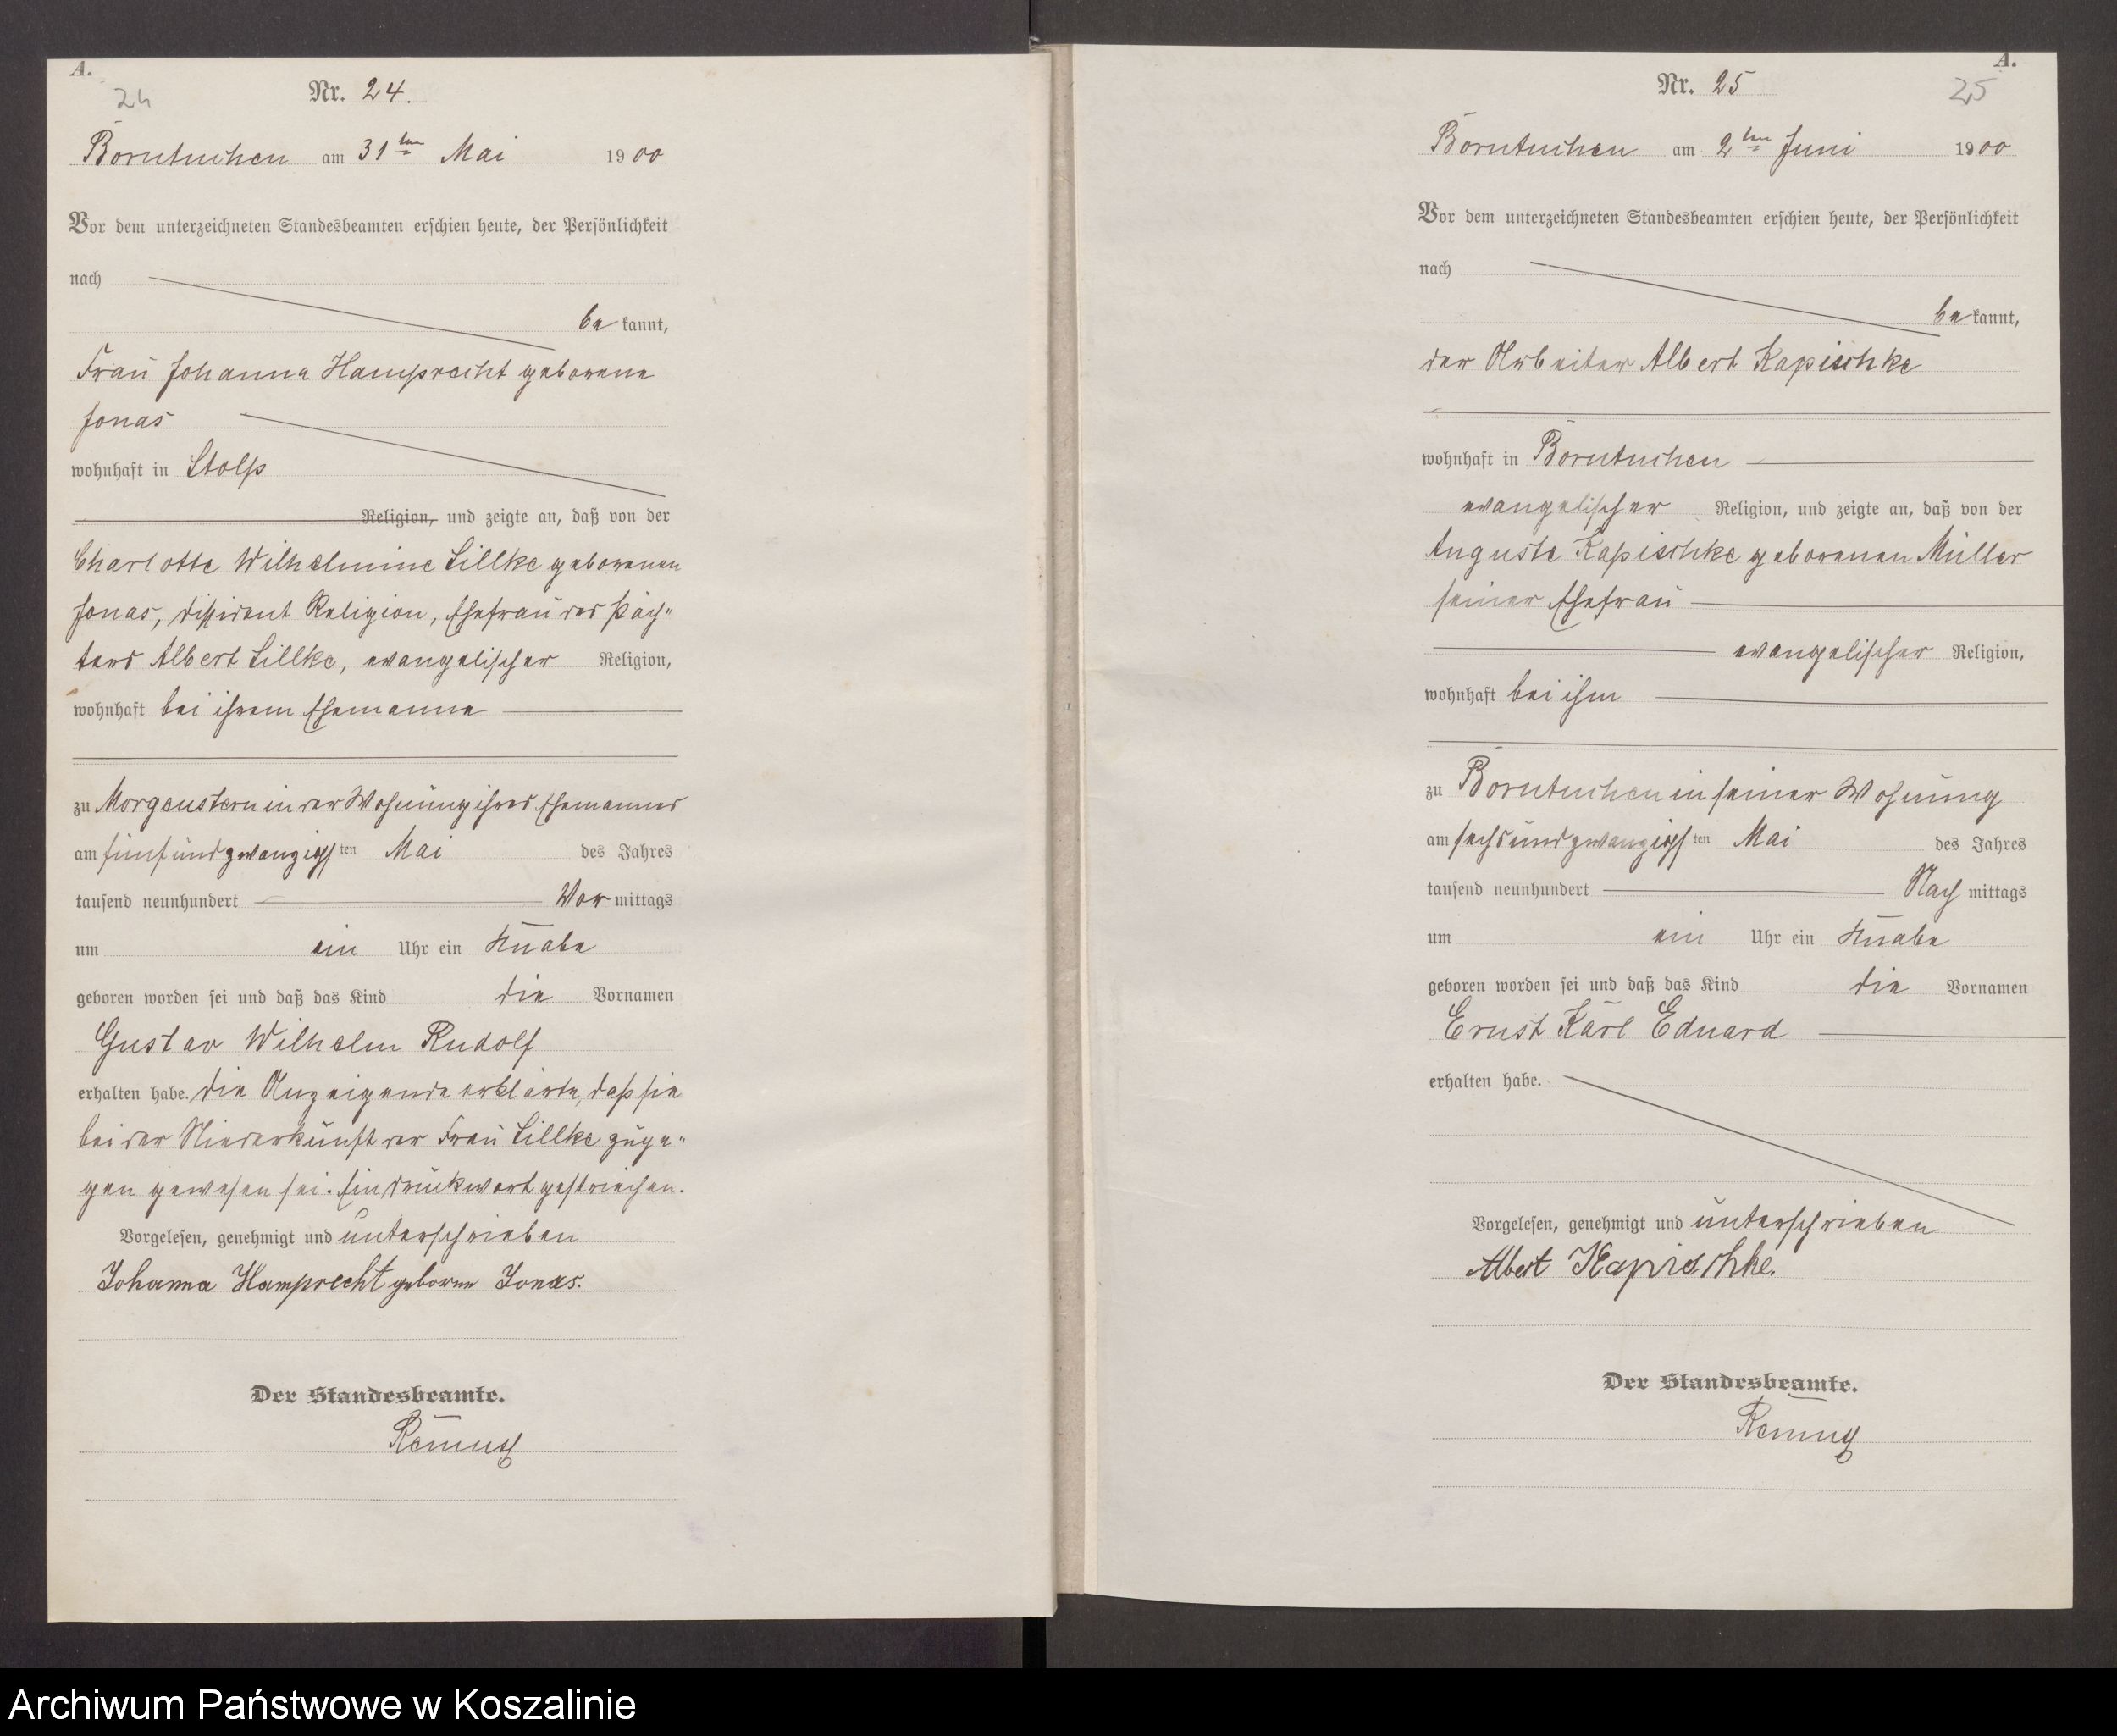 A.
24
Nr. 24.
Borntuchen am 31ten Mai 1900
Vor dem unterzeichneten Standesbeamten erschien heute, der Persönlichkeit
nach
be kannt,
Frau Johanna Hamprecht geborene
Jonas
wohnhaft in Stolp
Religion, und zeigte an, daß von der
Charlotte Wilhelmine Lillke geborenen
Jonas, dissident Religion, Ehefrau des Päch-
ters Albert Lillke, evangelischer Religion,
wohnhaft bei ihrem Ehemanne
zu Morgenstern in der Wohnung ihres Ehemannes
am fünfundzwanzigsten Mai des Jahres
tausend neunhundert Vor mittags
um ein Uhr ein Knabe
geboren worden sei und daß das Kind die Vornamen
Gustav Wilhelm Rudolf
erhalten habe. Die Anzeigende erklärte, daß sie
bei der Niederkunft der Frau Lillke zuge-
gen gewesen sei. Ein Druckwort gestrichen.
Vorgelesen, genehmigt und unterschrieben
Johanna Hamprecht geborene Jonas.
Der Standesbeamte.
A.
25
Nr. 25
Borntuchen am 2ten Juni 1900
Vor dem unterzeichneten Standesbeamten erschien heute, der Persönlichkeit
nach
be kannt,
der Arbeiter Albert Kapischke
wohnhaft in Borntuchen
evangelischer Religion, und zeigte an, daß von der
Auguste Kapischke geborenen Müller
seiner Ehefrau
evangelischer Religion,
wohnhaft bei ihm
zu Borntuchen in seiner Wohnung
am sechsundzwanzigsten Mai des Jahres
tausend neunhundert Nach mittags
um ein Uhr ein Knabe
geboren worden sei und daß das Kind die Vornamen
Ernst Karl Eduard
erhalten habe.
Vorgelesen, genehmigt und unterschrieben
Albert Kapischke.
Der Standesbeamte.
Archiwum Państwowe w Koszalinie